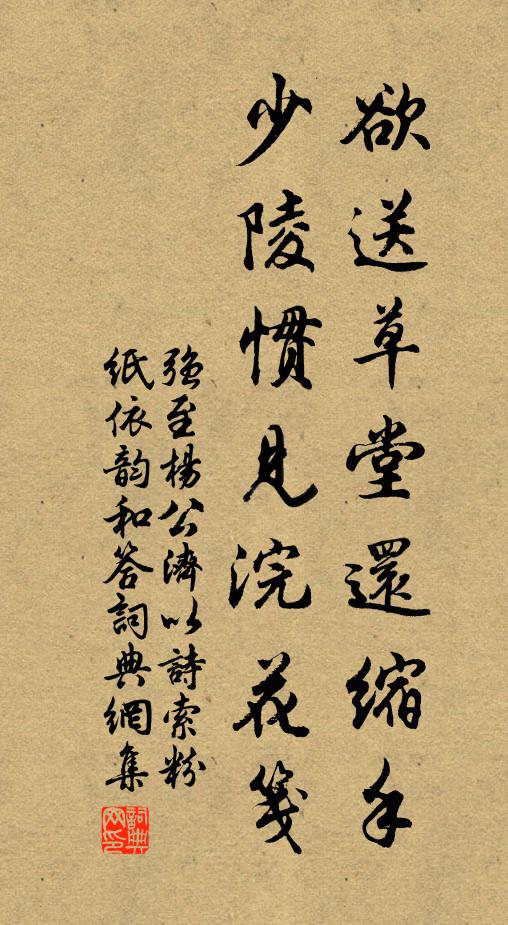 欲送草堂還縮手
少陵慣見浣花箋
強至楊公濟以詩索粉
紙依韵和答詞典網集
詞典网印